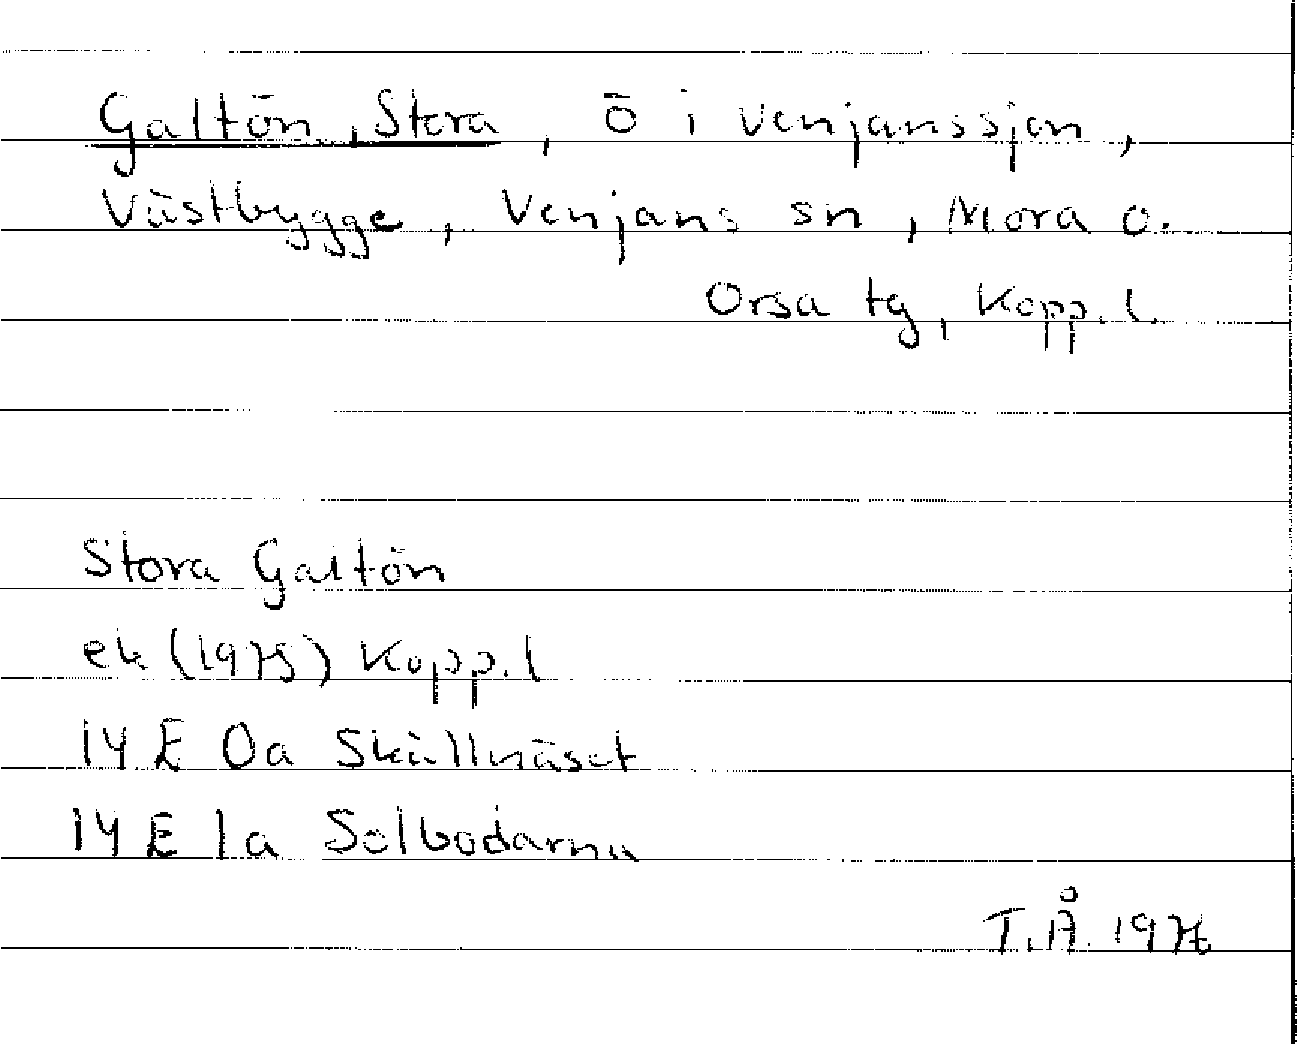 Galtön, Stora, ö i Venjanssjön,
Västbygge, Venjans sn, Mora o.
Orsa tg, Kopp. l.
Stora Galtön
ek (1975) Kopp. l
14 E 0a Skällnäset
14 E 1a Solbodarna
T.Å. 1976